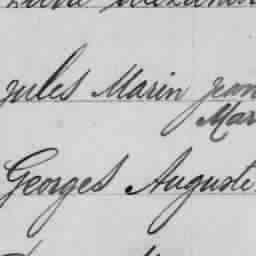 Jules Marin Jean
Mar
Georges Auguste